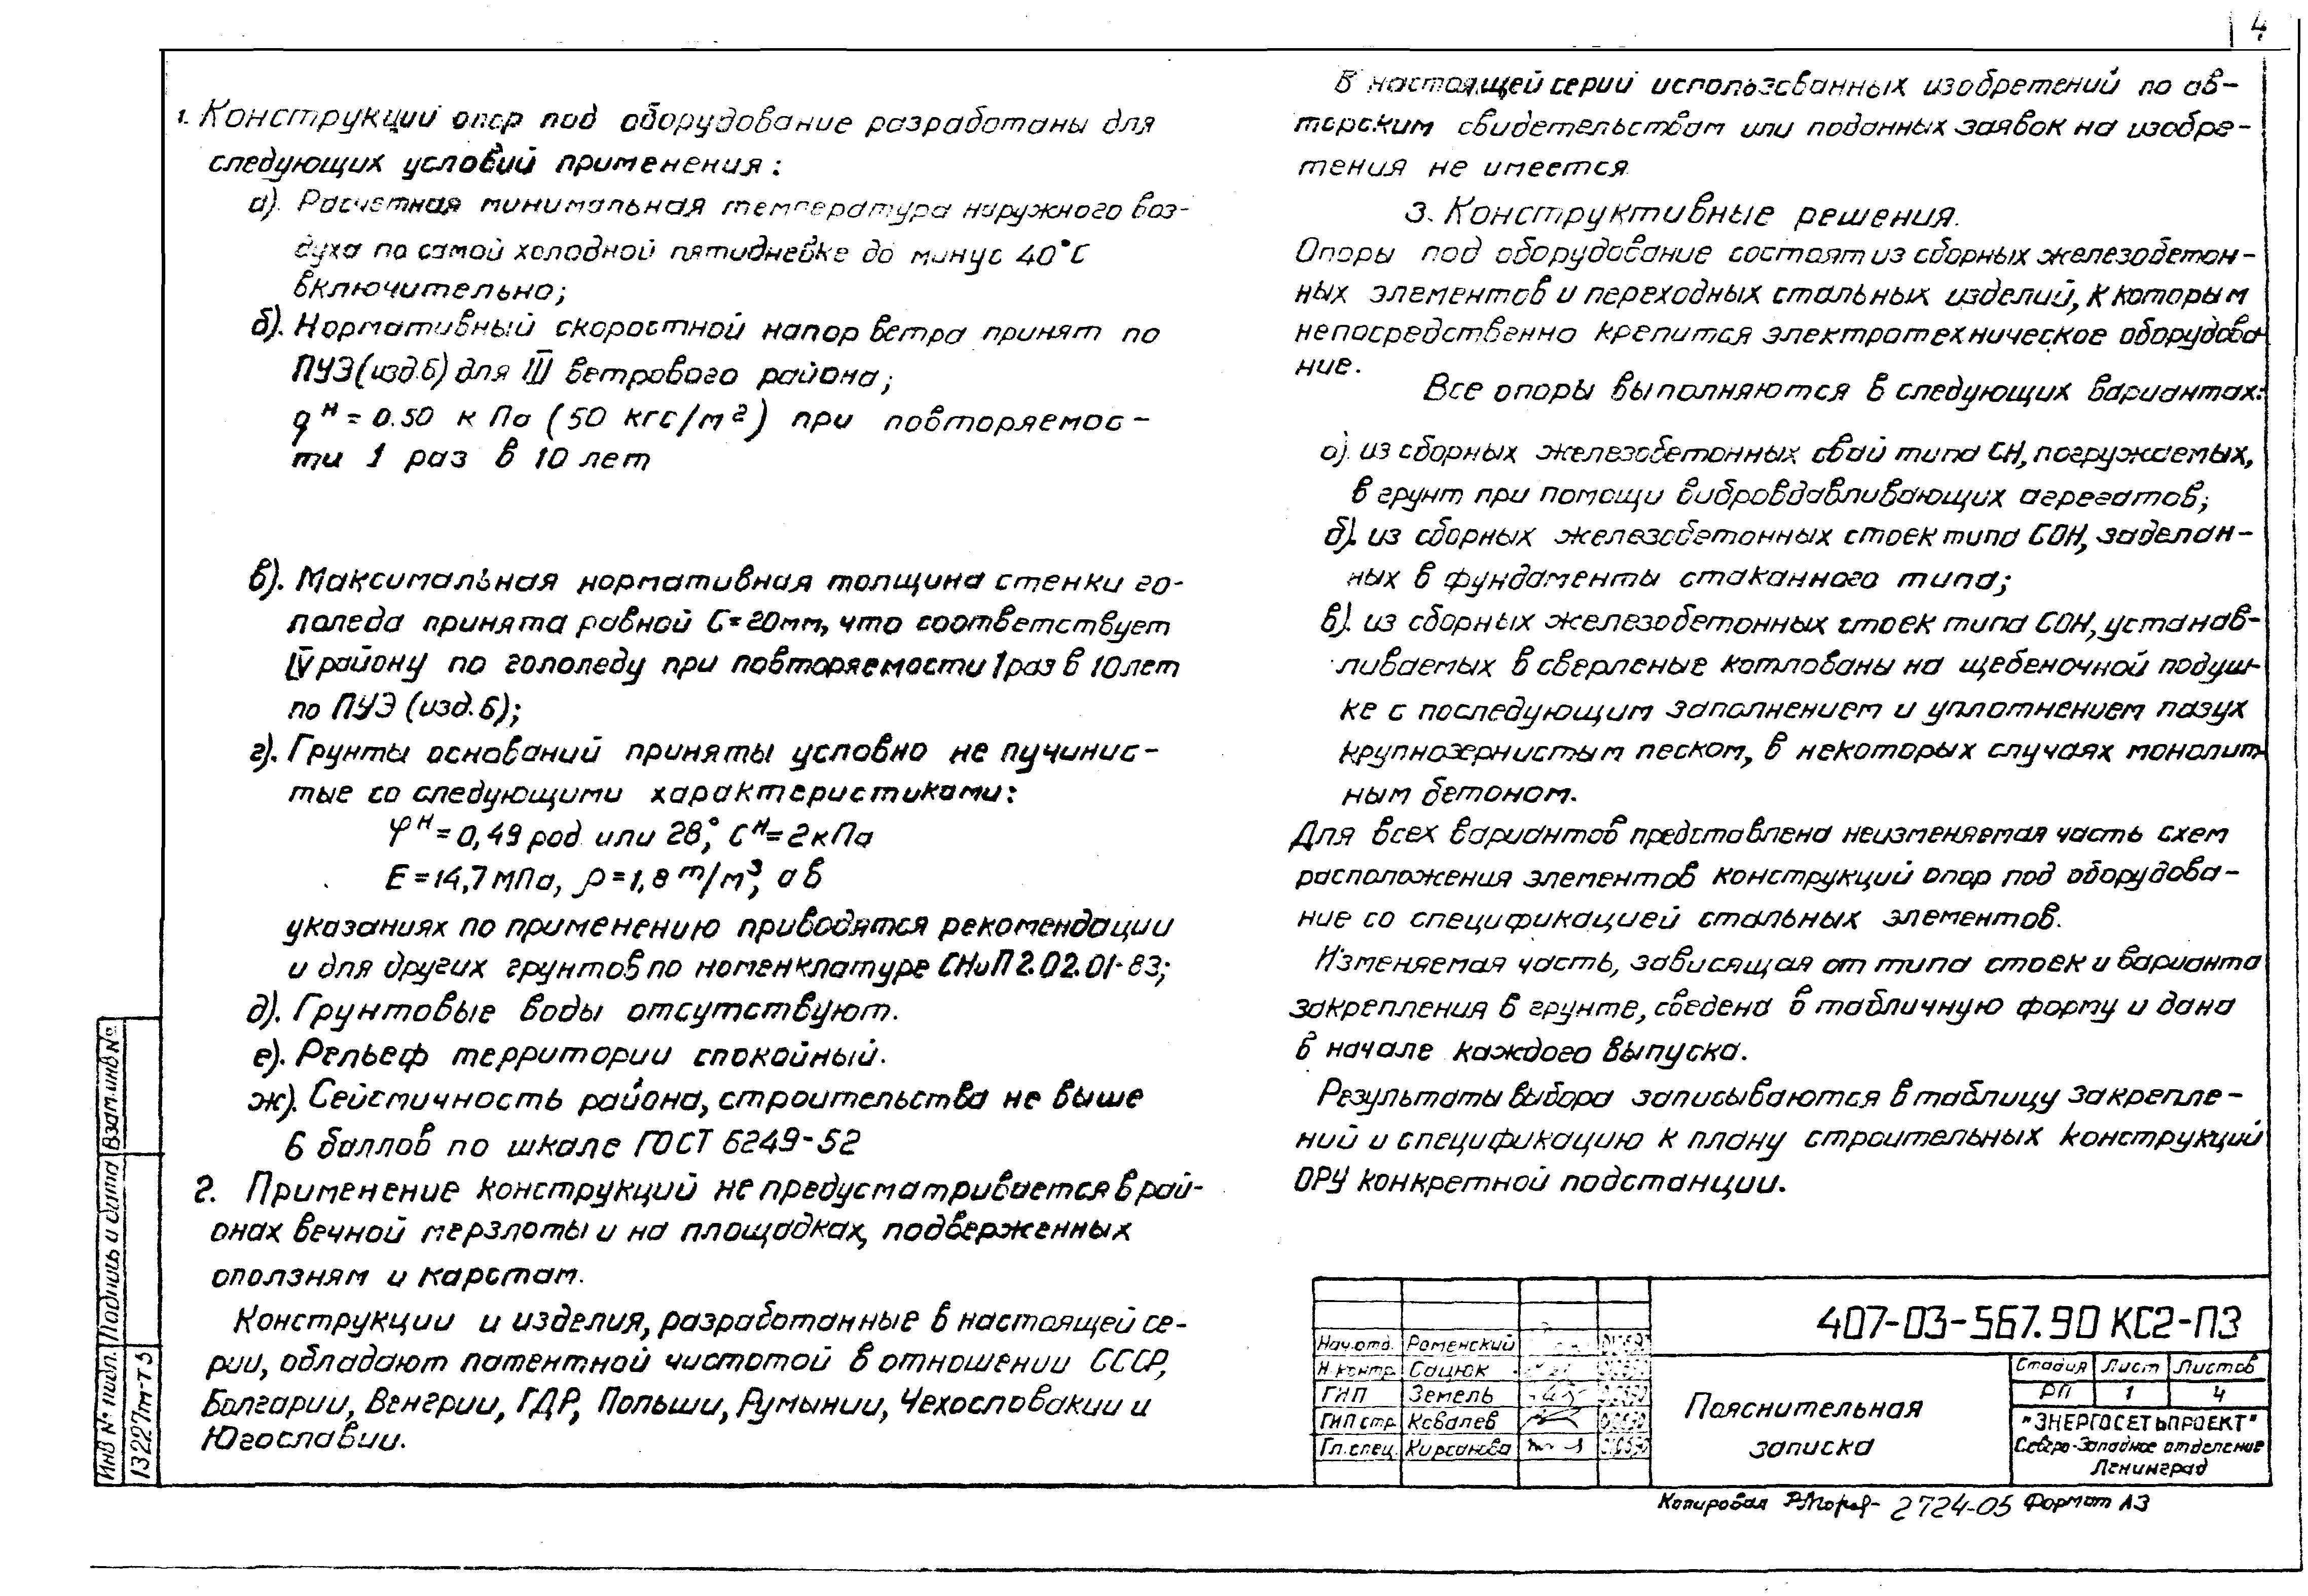 4
1. Конструкций опор под оборудование разработаны для
следующих условий применения:
а). Расчетная минимальная температура наружного воз-
духа по самой холодной пятидневке до минус 40°С
включительно;
б). Нормативный скоростной напор ветра принят по
ПУЭ (изд.6) для III ветрового района;
qᴴ = 0.50 кПа (50 кгс/м²) при повторяемос-
ти 1 раз в 10 лет
в). Максимальная нормативная толщина стенки го-
лоледа принята равной С=20мм, что соответствует
IV району по гололеду при повторяемости 1 раз в 10 лет
по ПУЭ (изд.6);
г). Грунты оснований приняты условно не пучинис-
тые со следующими характеристиками:
φᴴ = 0,49 рад или 28°, Сᴴ = 2кПа
Е = 14,7 МПа, ρ = 1,8 т/м³, а в
указаниях по применению приводятся рекомендации
и для других грунтов по номенклатуре СНиП 2.02.01-83;
д). Грунтовые воды отсутствуют.
е). Рельеф территории спокойный.
ж). Сейсмичность района, строительства не выше
6 баллов по шкале ГОСТ 6249-52
2. Применение конструкций не предусматривается в рай-
онах вечной мерзлоты и на площадках, подверженных
оползням и карстам.
Конструкции и изделия, разработанные в настоящей се-
рии, обладают патентной чистотой в отношении СССР,
Болгарии, Венгрии, ГДР, Польши, Румынии, Чехословакии и
Югославии.
В настоящей серии использованных изобретений по ав-
торским свидетельствам или поданных заявок на изобре-
тения не имеется
3. Конструктивные решения.
Опоры под оборудование состоят из сборных железобетон-
ных элементов и переходных стальных изделий, к которым
непосредственно крепится электротехническое оборудова-
ние.
Все опоры выполняются в следующих вариантах:
а). из сборных железобетонных свай типа СН, погружаемых,
в грунт при помощи вибровдавливающих агрегатов;
б). из сборных железобетонных стоек типа СОН, заделан-
ных в фундаменты стаканного типа;
в). из сборных железобетонных стоек типа СОН, устанав-
ливаемых в сверленые котлованы на щебеночной подуш-
ке с последующим заполнением и уплотнением пазух
крупнозернистым песком, в некоторых случаях монолит-
ным бетоном.
Для всех вариантов представлена неизменяемая часть схем
расположения элементов конструкций опор под оборудова-
ние со спецификацией стальных элементов.
Изменяемая часть, зависящая от типа стоек и варианта
закрепления в грунте, сведена в табличную форму и дана
в начале каждого выпуска.
Результаты выбора записываются в таблицу закрепле-
ний и спецификацию к плану строительных конструкций
ОРУ конкретной подстанции.
Инв № подл. Подпись и дата Взам.инв№
13227тм-т5
407-03-567.90 КС2-ПЗ
Нач.отд. Роменский
Н.контр. Сацюк
ГИП Земель
ГИП стр. Ковалев
Гл.спец. Кирсанова
Пояснительная
записка
Стадия Лист Листов
РП 1 4
"ЭНЕРГОСЕТЬПРОЕКТ"
Северо-Западное отделение
Ленинград
Копировал 2724-05 Формат А3